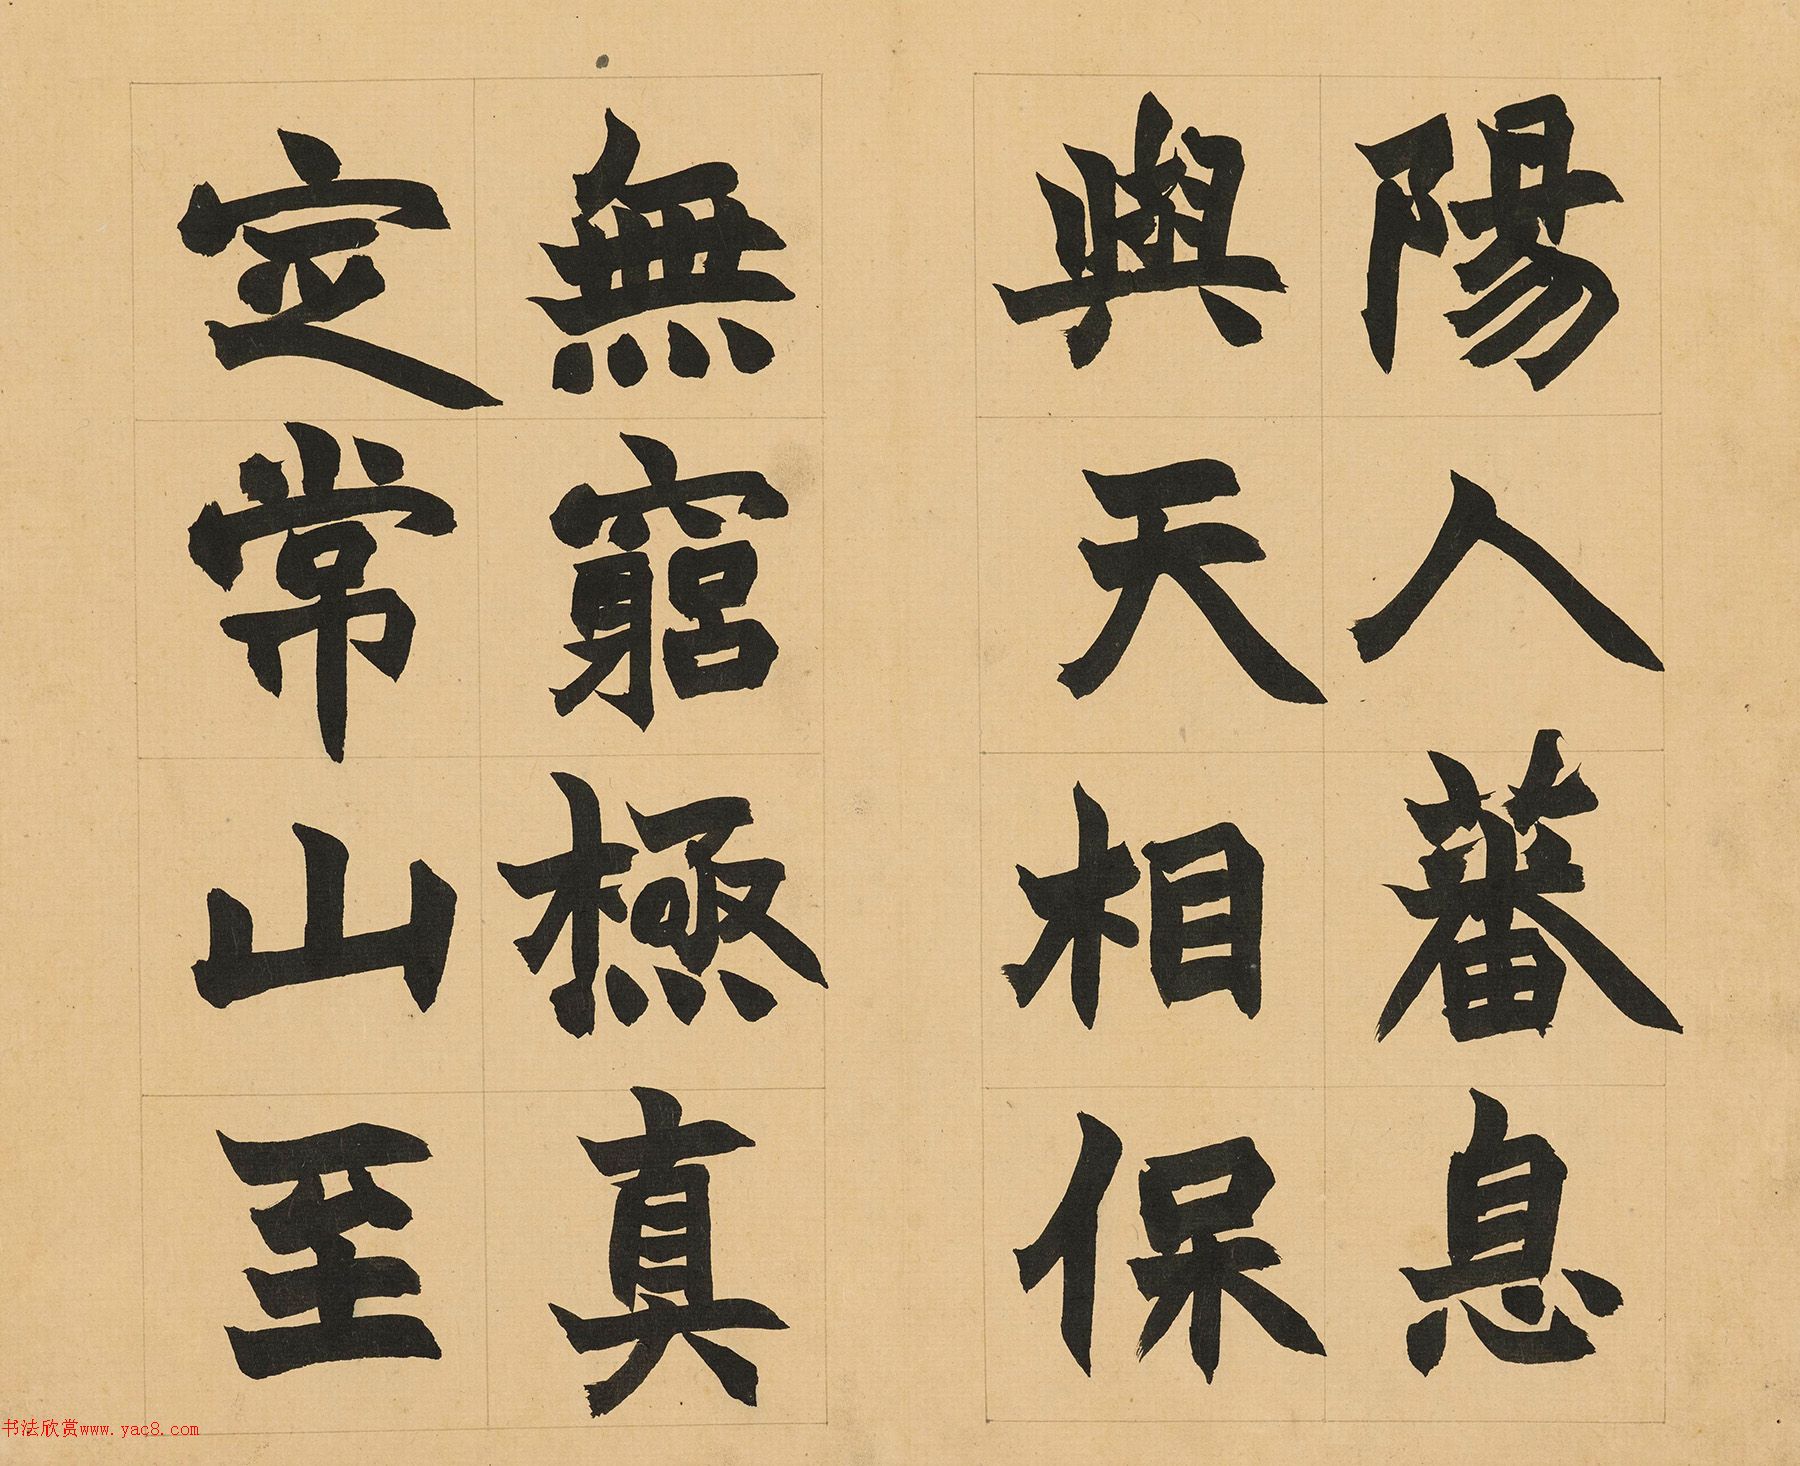 陽人蕃息
與天相保
無窮極真
定常山至
书法欣赏www.yac8.com